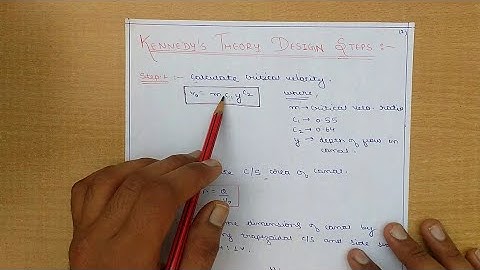 KENNEDY'S THEORY DESIGN STEPS :-
Step 1 :- Calculate critical velocity.
V₀ = m C₁ y^C₂
where,
m → critical velo. ratio
C₁ → 0.55
C₂ → 0.64
y → depth of flow in
canal.
C/S area of canal.
dimensions of canal by
trapezoidal C/S and side